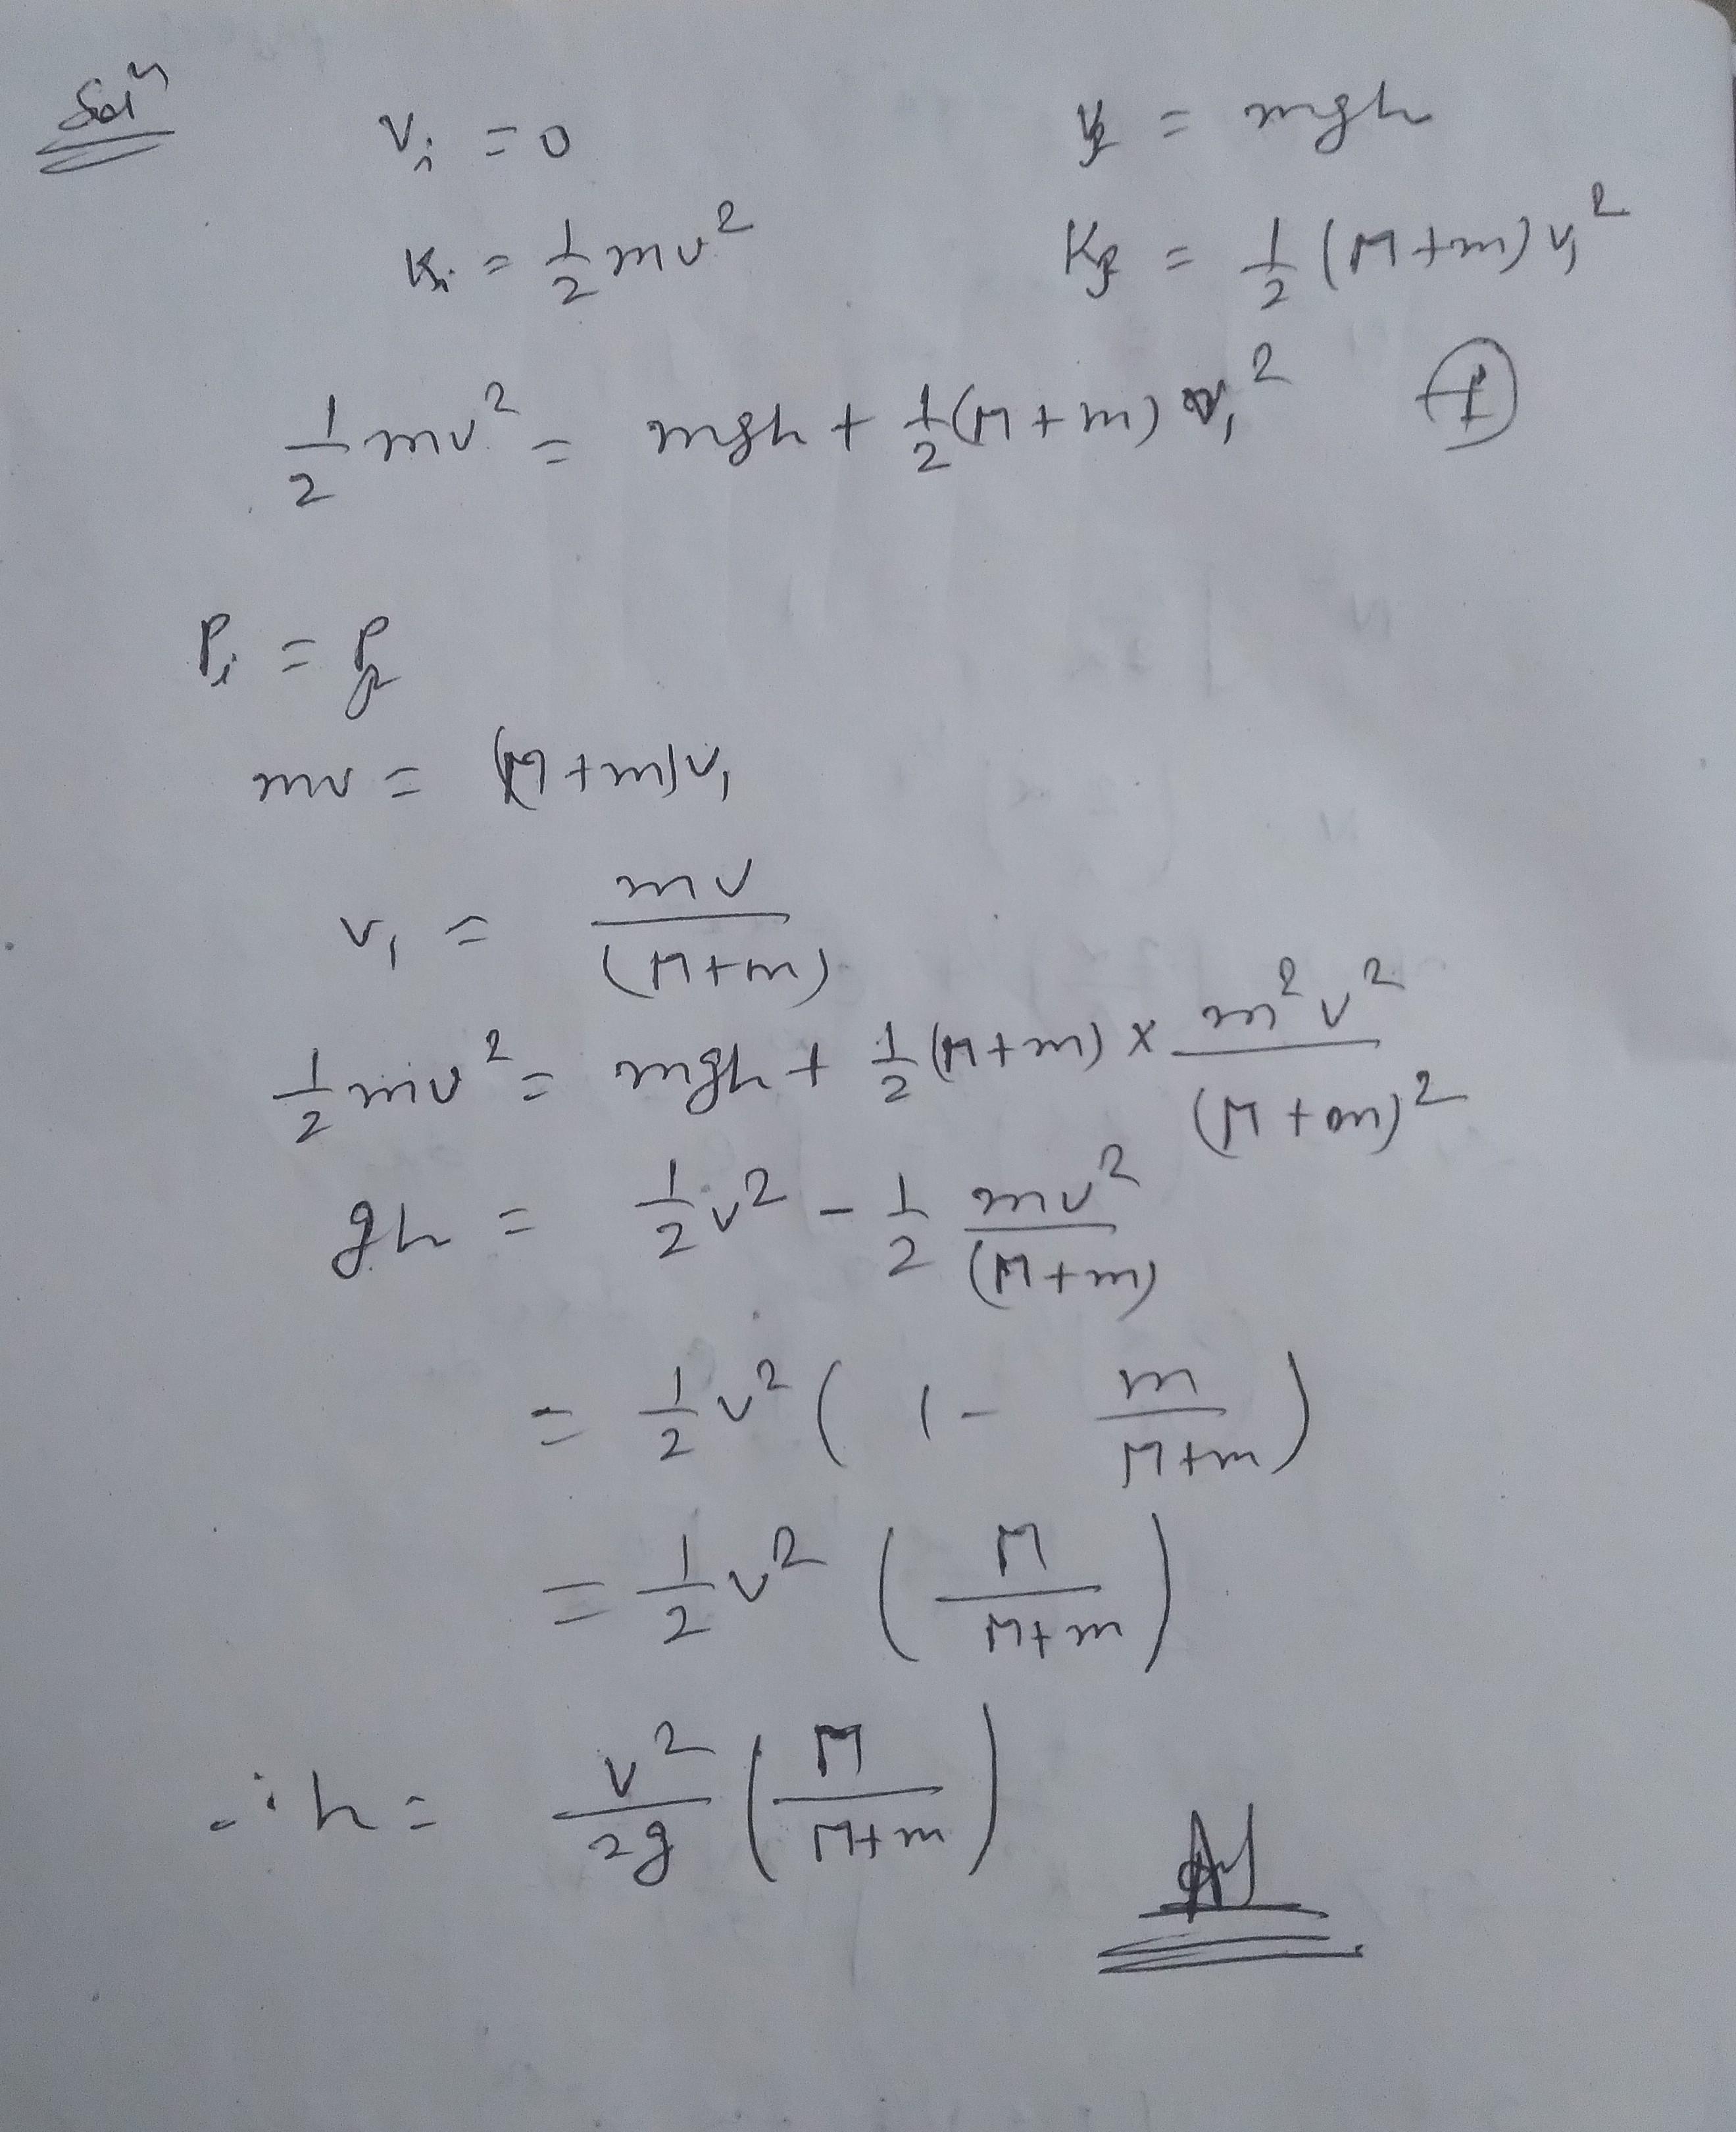 Solⁿ
Vᵢ = 0 V_f = mgh
Kᵢ = 1/2 mv² K_f = 1/2 (M+m)v₁²
1/2 mv² = mgh + 1/2 (M+m) v₁² ①
Pᵢ = P_f
mv = (M+m)v₁
v₁ = mv/(M+m)
1/2 mv² = mgh + 1/2 (M+m) × m²v²/(M+m)²
gh = 1/2 v² - 1/2 mv²/(M+m)
= 1/2 v² (1 - m/M+m)
= 1/2 v² (M/M+m)
∴ h = v²/2g (M/M+m)